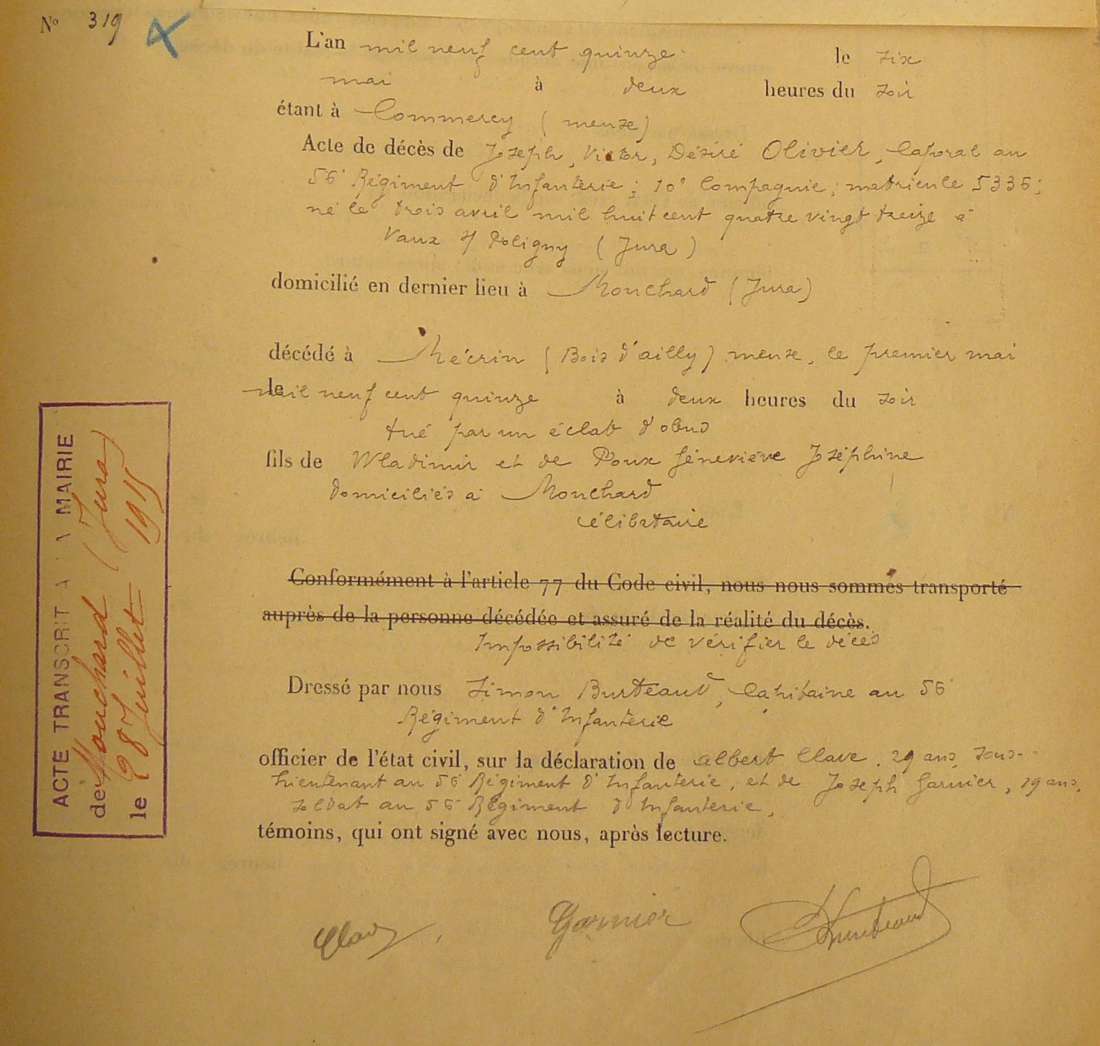 N° 319
L'an mil neuf cent quinze le six
mai à deux heures du soir
étant à Commercy (meuse)
Acte de décès de Joseph, Victor, Désiré Olivier, Caporal au
56e Régiment d'Infanterie; 10e Compagnie; matricule 5336;
né le trois avril mil huit cent quatre vingt treize à
Vaux s/ Poligny (Jura)
domicilié en dernier lieu à Mouchard (Jura)
décédé à Mécrin (Bois d'ailly) meuse, le premier mai
le mil neuf cent quinze à deux heures du soir
tué par un éclat d'obus
fils de Wladimir et de Roux Géneviève Joséphine
domiciliés à Mouchard
célibataire
Conformément à l'article 77 du Code civil, nous nous sommes transporté
auprès de la personne décédée et assuré de la réalité du décès.
Impossibilité de vérifier le décès
Dressé par nous Simon Burteaud, Capitaine au 56e
Régiment d'Infanterie
officier de l'état civil, sur la déclaration de albert Clave, 29 ans, sous-
lieutenant au 56e Régiment d'Infanterie, et de Joseph Garnier, 29 ans,
soldat au 56e Régiment d'Infanterie,
témoins, qui ont signé avec nous, après lecture.
Garnier
ACTE TRANSCRIT A LA MAIRIE
de Mouchard (Jura)
le 28 Juillet 1915